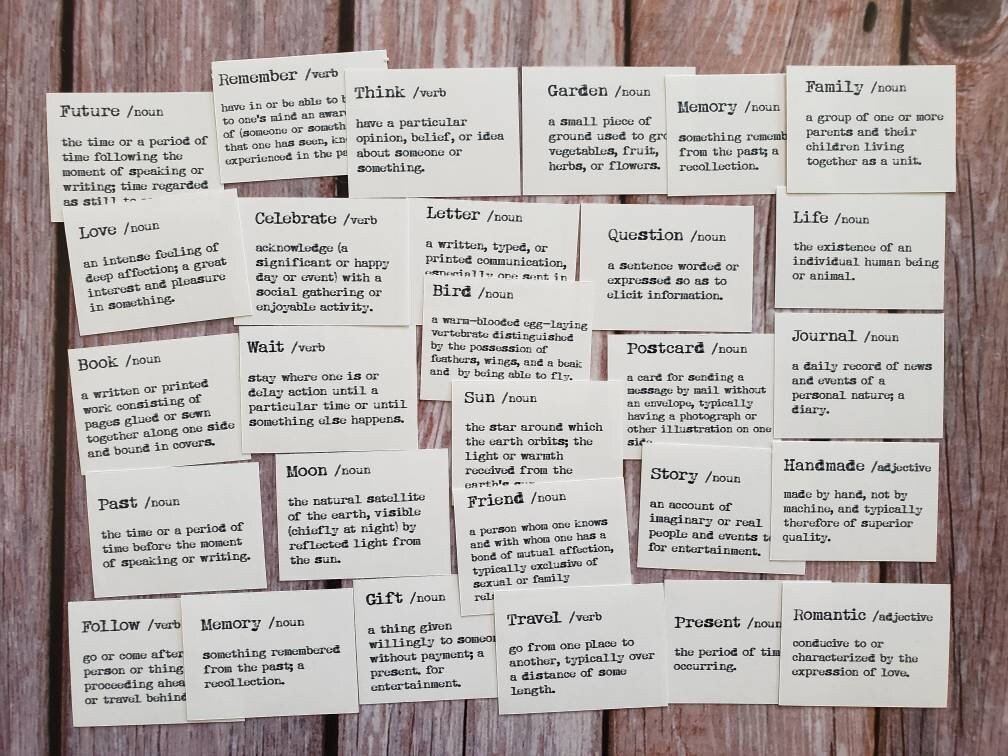 Future /noun
the time or a period of
time following the
moment of speaking or
writing; time regarded
as still
Remember /verb
have in or be able to
to one's mind an
of (someone or
that one has seen,
experienced in the
Think /verb
have a particular
opinion, belief, or idea
about someone or
something.
Garden /noun
a small piece of
ground used to
vegetables, fruit,
herbs, or flowers.
Memory /noun
something
from the past; a
recollection.
Family /noun
a group of one or more
parents and their
children living
together as a unit.
Love /noun
an intense feeling of
deep affection; a great
interest and pleasure
in something.
Celebrate /verb
acknowledge (a
significant or happy
day or event) with a
social gathering or
enjoyable activity.
Letter /noun
a written, typed, or
printed communication,
especially one sent in
Question /noun
a sentence worded or
expressed so as to
elicit information.
Life /noun
the existence of an
individual human being
or animal.
Bird /noun
a warm-blooded egg-laying
vertebrate distinguished
by the possession of
feathers, wings, and a beak
and by being able to fly.
Book /noun
a written or printed
work consisting of
pages glued or sewn
together along one side
and bound in covers.
Wait /verb
stay where one is or
delay action until a
particular time or until
something else happens.
Postcard /noun
a card for sending a
message by mail without
an envelope, typically
having a photograph or
other illustration on one
side.
Journal /noun
a daily record of news
and events of a
personal nature; a
diary.
Sun /noun
the star around which
the earth orbits; the
light or warmth
received from the
earth's
Past /noun
the time or a period of
time before the moment
of speaking or writing.
Moon /noun
the natural satellite
of the earth, visible
(chiefly at night) by
reflected light from
the sun.
Friend /noun
a person whom one knows
and with whom one has a
bond of mutual affection,
typically exclusive of
sexual or family
Story /noun
an account of
imaginary or real
people and events
for entertainment.
Handmade /adjective
made by hand, not by
machine, and typically
therefore of superior
quality.
Follow /verb
go or come after
person or thing
proceeding
or travel behind
Memory /noun
something remembered
from the past; a
recollection.
Gift /noun
a thing given
willingly to
without payment; a
present. for
entertainment.
Travel /verb
go from one place to
another, typically over
a distance of some
length.
Present /noun
the period of
occurring.
Romantic /adjective
conducive to or
characterized by the
expression of love.